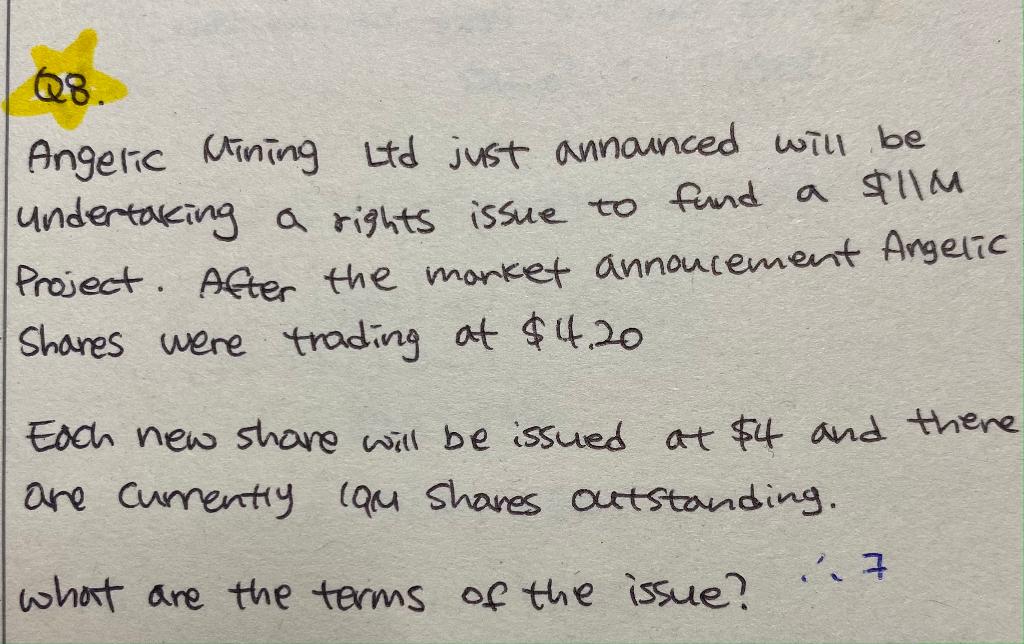 Q8.
Angelic Mining Ltd just announced will be
undertaking a rights issue to fund a $11M
Project. After the market annoucement Angelic
Shares were trading at $4.20
Each new share will be issued at $4 and there
are currently 19M Shares outstanding.
what are the terms of the issue? ∴ 7